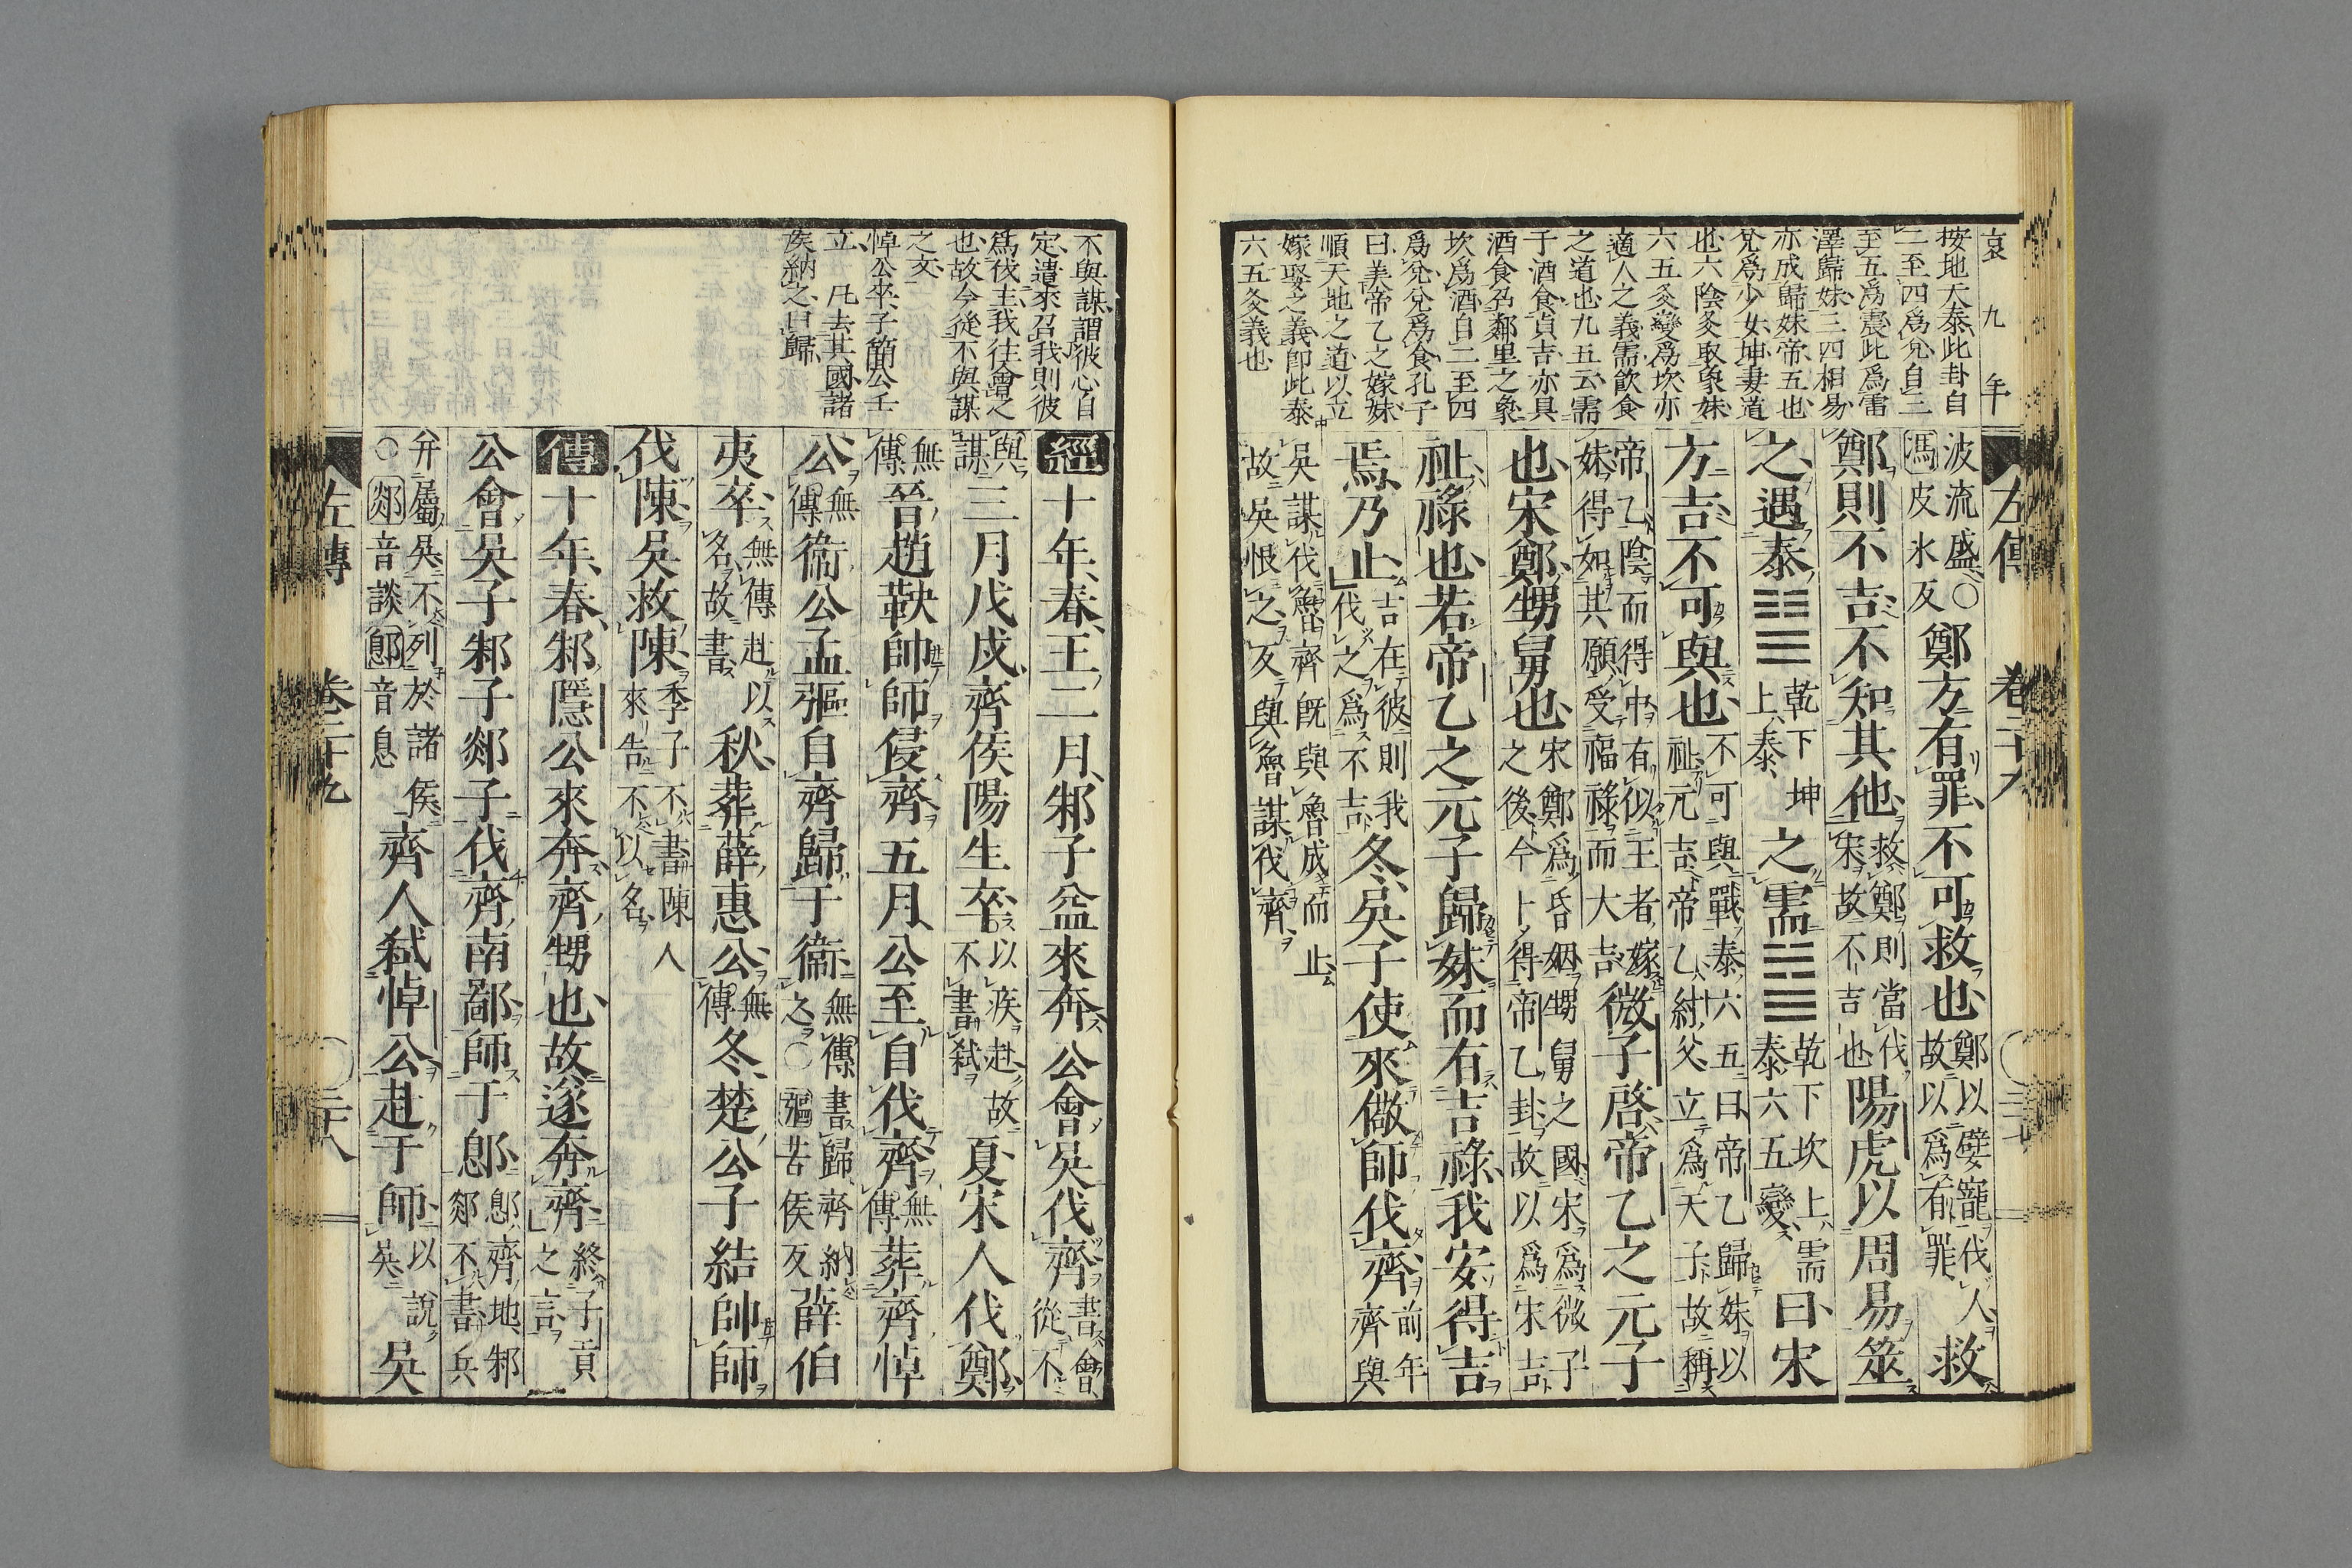 哀九年
按地天泰此卦自
二至四爲兌自三
至五爲震此爲雷
澤歸妹三四相易
亦成歸妹帝五也
兌爲少女坤妻道
也六陰爻取象妹
六五爻變爲坎亦
適人之義需飲食
之道也九五云需
于酒食貞吉亦具
酒食召鄰里之象
坎爲酒自二至四
爲兌兌爲食孔子
曰美帝乙之嫁妹
順天地之道以立
嫁娶之義卽此泰
六五爻義也
左傳 卷二十九
波流盛○馮皮氷反鄭方有罪不可救也鄭以嬖寵伐人故以爲有罪救
鄭則不吉不知其他救鄭則當伐宋故不吉也陽虎以周易筮
之遇泰䷊乾下坤上泰之需䷄乾下坎上需泰六五變曰宋
方吉不可與也不可與戰泰六五曰帝乙歸妹以祉元吉帝乙紂父立爲天子故稱
帝乙陰而得中有似王者嫁妹得如其願受福祿而大吉微子啓帝乙之元子
也宋鄭甥舅也宋鄭爲昏姻甥舅之國宋爲微子之後今卜得帝乙卦故以爲宋吉
祉祿也若帝乙之元子歸妹而有吉祿我安得吉
焉乃止吉在彼則我伐之爲不吉冬吳子使來儆師伐齊前年齊與
吳謀伐魯齊既與魯成而止故吳恨之反與魯謀伐齊
不與謀謂彼心自
定遣來召我則彼
爲伐主我往會之
也故今從不與謀
之文
悼公卒子簡公壬
立 凡去其國諸
侯納之曰歸
經十年春王二月邾子益來奔公會吳伐齊書會從不
與謀三月戊戌齊侯陽生卒以疾赴故不書弑夏宋人伐鄭
無傳晉趙鞅帥師侵齊五月公至自伐齊無傳葬齊悼
公無傳衞公孟彄自齊歸于衞無傳書歸齊納之○彄苦侯反薛伯
夷卒無傳赴以名故書秋葬薛惠公無傳冬楚公子結帥師
伐陳吳救陳季子不書陳人來告不以名
傳十年春邾隱公來奔齊甥也故遂奔齊終子貢之言
公會吳子邾子郯子伐齊南鄙師于鄎鄎齊地邾郯不書兵
并屬吳不列於諸侯○郯音談鄎音息齊人弑悼公赴于師以說吳吳
左傳 卷二十九 二十八